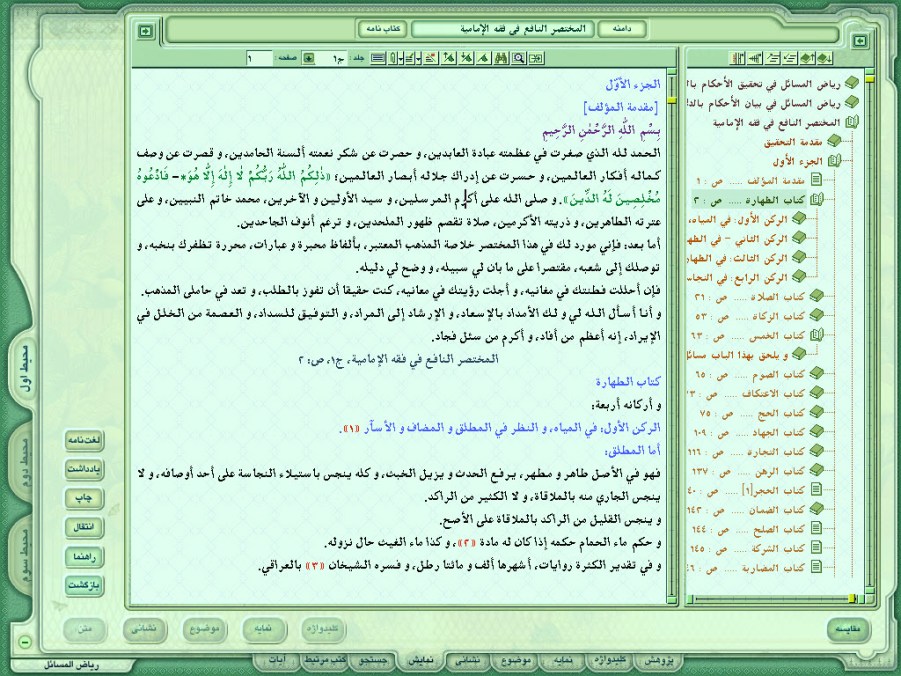 دامنه
المختصر النافع في فقه الإمامية
كتاب نامه
جلد : ج١
صفحه : ١
رياض المسائل في تحقيق الأحكام بالدلا
رياض المسائل في بيان الأحكام بالدلا
المختصر النافع في فقه الإمامية
مقدمة التحقيق
الجزء الأول
مقدمة المؤلف ..... ص : ١
كتاب الطهارة ..... ص : ٢
الركن الأول: في المياه،
الركن الثاني - في الطه
الركن الثالث: في الطهار
الركن الرابع: في النجاس
كتاب الصلاة ..... ص : ٢١
كتاب الزكاة ..... ص : ٥٣
كتاب الخمس ..... ص : ٦٣
و يلحق بهذا الباب مسائل
كتاب الصوم ..... ص : ٦٥
كتاب الاعتكاف .....
كتاب الحج ..... ص : ٧٥
كتاب الجهاد ..... ص : ١٠٩
كتاب التجارة ..... ص : ١١٦
كتاب الرهن ..... ص : ١٣٧
كتاب الحجر[١] .....
كتاب الضمان ..... ص : ١٤٣
كتاب الصلح ..... ص : ١٤٤
كتاب الشركة ..... ص : ١٤٥
كتاب المضاربة ..... ص :
الجزء الأوّل
[مقدمة المؤلف]
بِسْمِ اللّٰهِ الرَّحْمٰنِ الرَّحِيمِ
الحمد لله الذي صغرت في عظمته عبادة العابدين، و حصرت عن شكر نعمته ألسنة الحامدين، و قصرت عن وصف
كماله أفكار العالمين، و حسرت عن إدراك جلاله أبصار العالمين؛ «ذٰلِكُمُ اللّٰهُ رَبُّكُمْ لٰا إِلٰهَ إِلّٰا هُوَ*- فَادْعُوهُ
مُخْلِصِينَ لَهُ الدِّينَ». و صلى الله على أكرم المرسلين، و سيد الأولين و الآخرين، محمد خاتم النبيين، و على
عترته الطاهرين، و ذريته الأكرمين، صلاة تقصم ظهور الملحدين، و ترغم أنوف الجاحدين.
أما بعد: فإني مورد لك في هذا المختصر خلاصة المذهب المعتبر، بألفاظ محبرة و عبارات، محررة تظفرك بنخبه، و
توصلك إلى شعبه، مقتصرا على ما بان لي سبيله، و وضح لي دليله.
فإن أحللت فطنتك في مغانيه، و أجلت رؤيتك في معانيه، كنت حقيقا أن تفوز بالطلب، و تعد في حاملى المذهب.
و أنا أسأل الله لي و لك الأمداد بالإسعاد، و الإرشاد إلى المراد، و التوفيق للسداد، و العصمة من الخلل في
الإيراد، إنه أعظم من أفاد، و أكرم من سئل فجاد.
المختصر النافع في فقه الإمامية، ج١، ص: ٢
كتاب الطهارة
و أركانه أربعة:
الركن الأول: في المياه، و النظر في المطلق و المضاف و الأسآر «١».
أما المطلق:
فهو في الأصل طاهر و مطهر، يرفع الحدث و يزيل الخبث، و كله ينجس باستيلاء النجاسة على أحد أوصافه، و لا
ينجس الجاري منه بالملاقاة، و لا الكثير من الراكد.
و ينجس القليل من الراكد بالملاقاة على الأصح.
و حكم ماء الحمام حكمه إذا كان له مادة «٢»، و كذا ماء الغيث حال نزوله.
و في تقدير الكثرة روايات، أشهرها ألف و مائتا رطل، و فسره الشيخان «٣» بالعراقي.
محيط اول
محيط دوم
محيط سوم
لغت‌نامه
يادداشت
چاپ
انتقال
راهنما
بازگشت
مقايسه
كليدواژه
نمايه
موضوع
نشانى
متن
پژوهش
كليدواژه
نمايه
موضوع
نشانى
نمايش
جستجو
كتب مرتبط
آيات
رياض المسائل